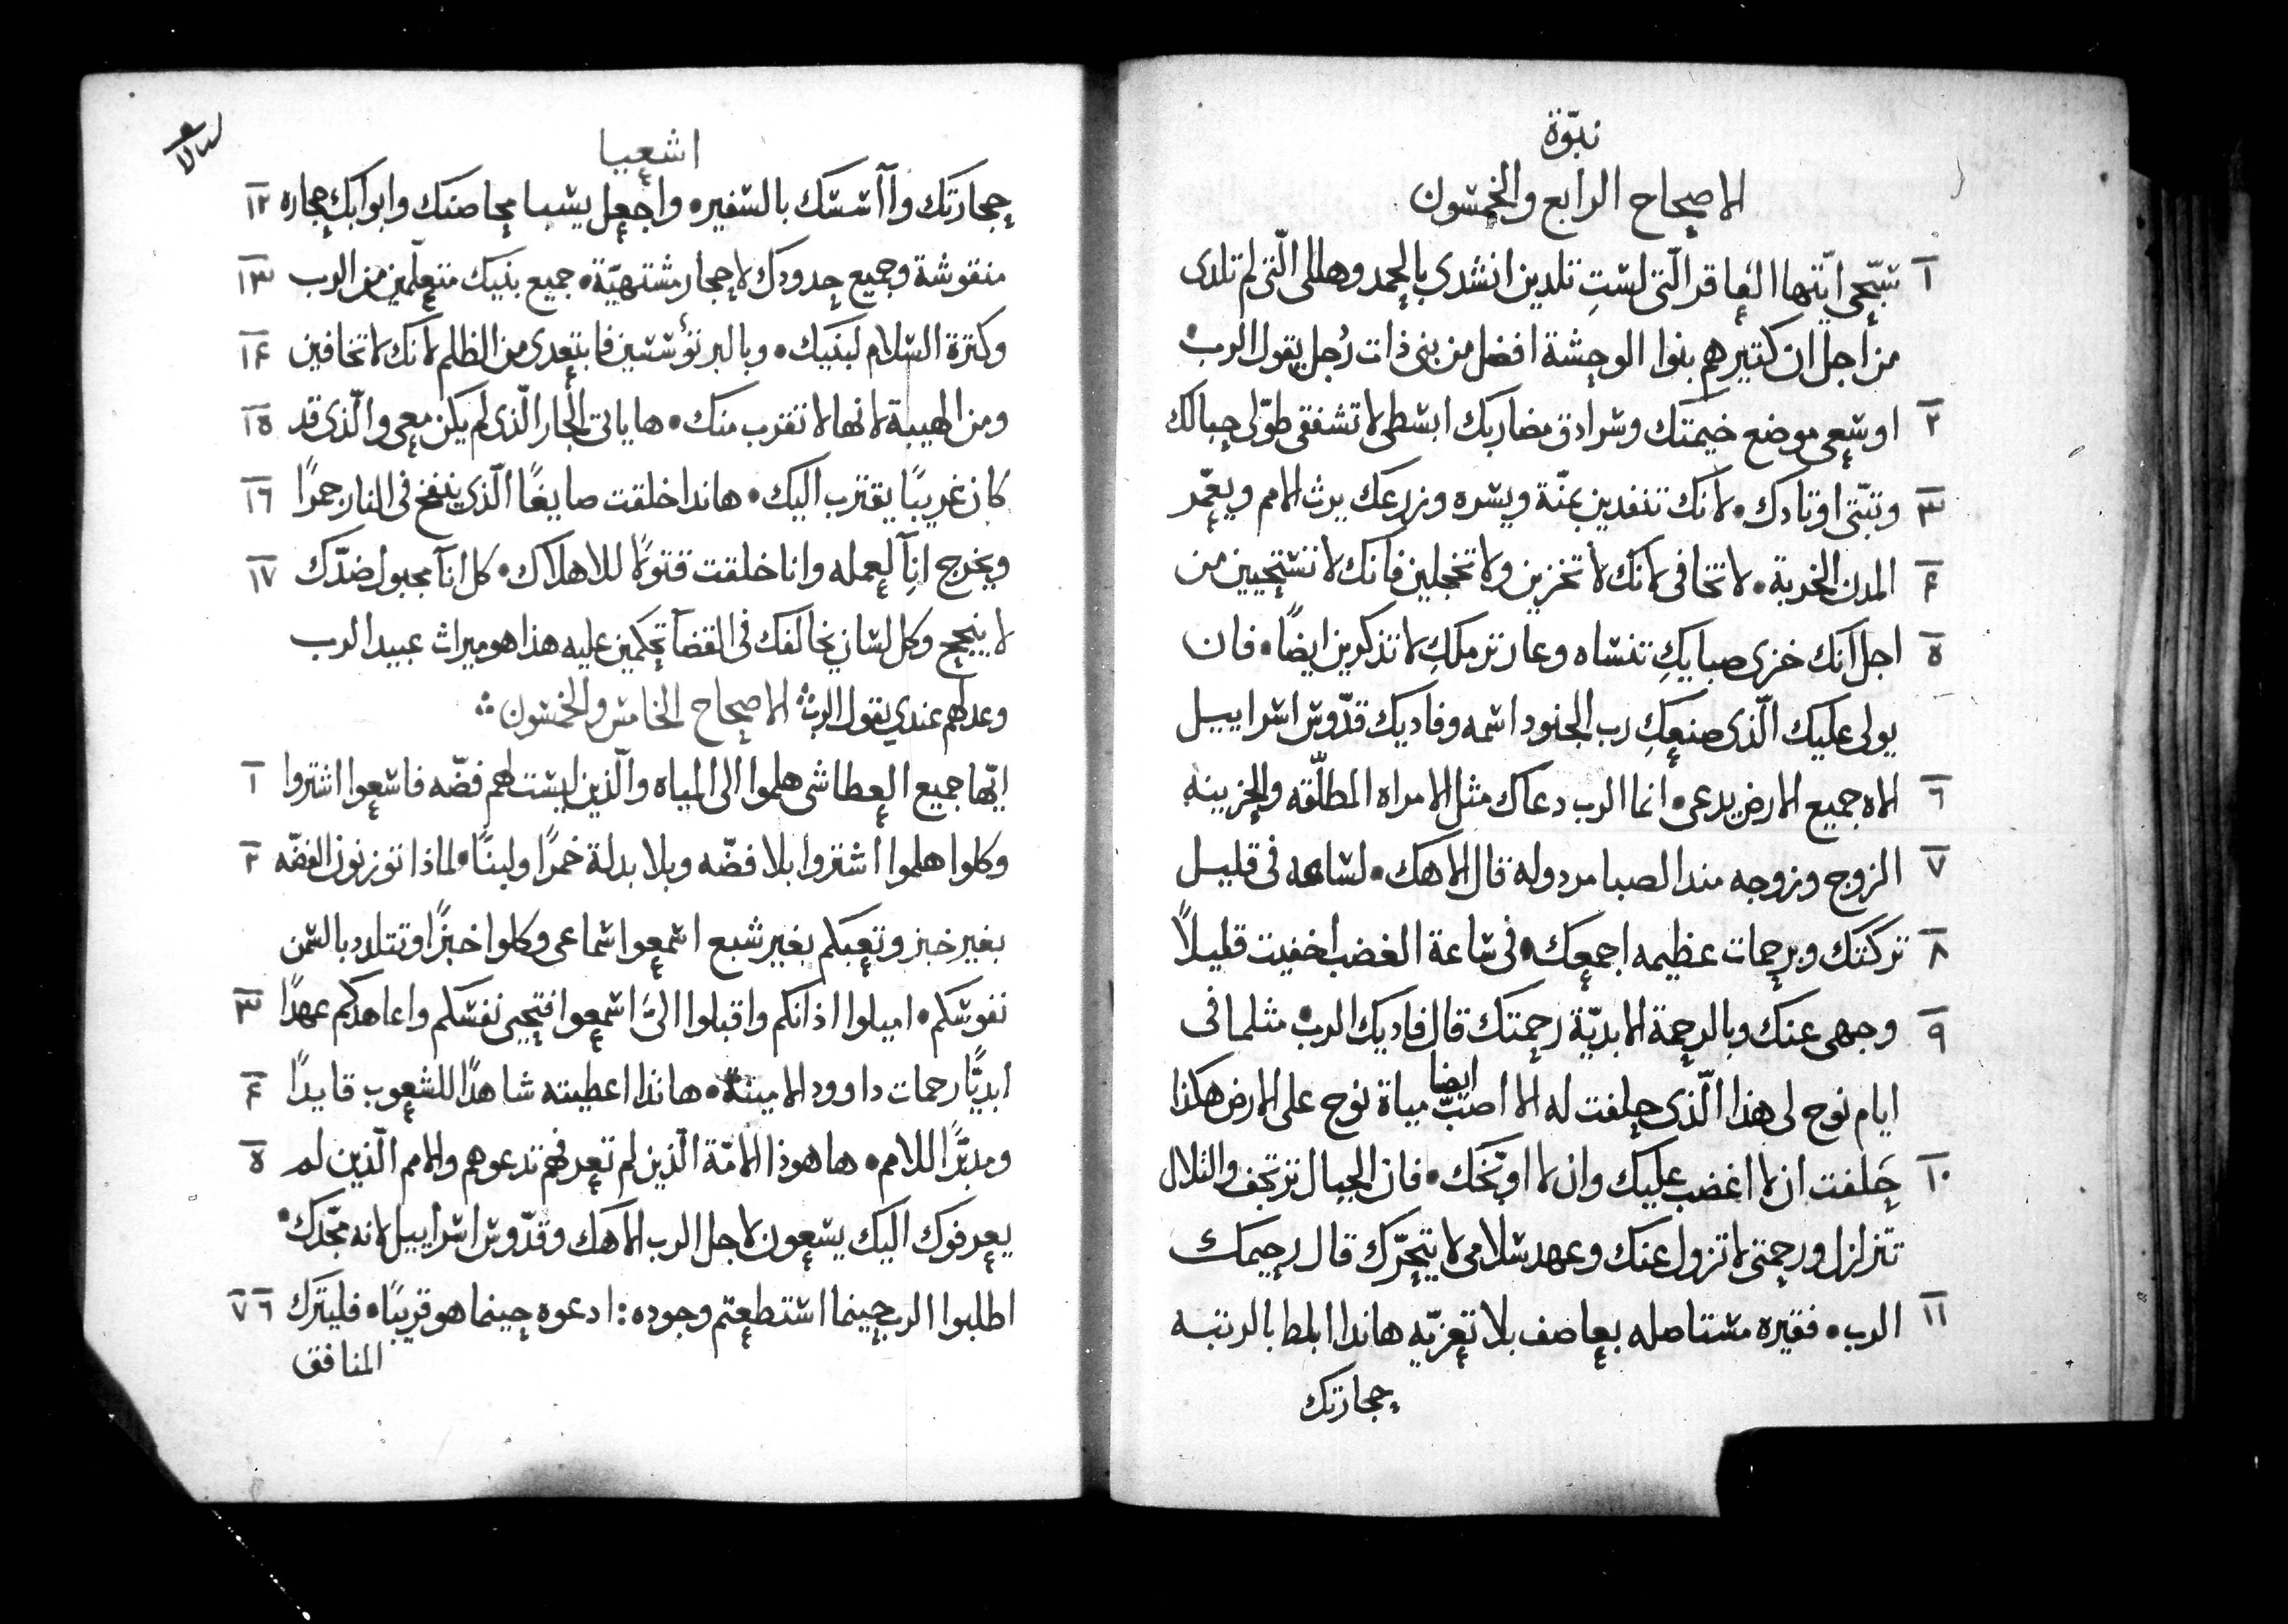 نبوّة
الاصحاح الرابع والخمسون
١ سَبّحي ايّتها العاقر الّتي لستِ تلدين انشدي بالحمد وهللي الّتي لم تلدى
من اجل ان كتيرهم بنوا الوحشة افضل من بنى ذات رُجل يقول الرب•
٢ اوسعى موضع خيمتك وسرادق مضاربك ابسطى لا تشفقى طوّلى حبالك
٣ وتبّتى اوتادك• لانك تنفدين يمنّة ويسره وزرعك يرث الامم ويعمّر
٤ المدن الخربة• لا تخافى لانك لا تخزين ولا تخجلين فانك لا تستحيين من
٥ اجل انك خزى صبايكِ تنساه وعار ترملكِ لا تذكرين ايضًا• فان
يولى عليك الّذى صنعكِ رب الجنود اسمه وفاديك قدّوس اسراييل
٦ الاه جميع الارض يدعى• انما الرب دعاك مثل الامراه المطلّقه والحزينه
٧ الزوج وزوجه مند الصبا مردوله قال الاهك• لساعه فى قليل
٨ تركتك وبرحمات عظيمه اجمعك• فى ساعة الغضب اخفيت قليلاً
٩ وجهى عنك وبالرحمة الابديّة رحمتك قال فاديك الرب• مثلما فى
ايام نوح لى هذا الّذى حلفت له الا اصبّ ايضا مياة نوح على الارض هكذا
١٠ حَلفت ان لا اغضب عليك وان لا اوبّخك• فان الجبال ترتجف والتلال
تتزلزل ورحمتى لا تزول عنك وعهد سلامى لا يتحرّك قال رحيمك
١١ الرب• فقيره مستاصله بعاصف بلا تعزيّه هاندا ابلط بالرتبه
حجارتك
اشعيا
حجارتك وأأسسك بالسفيره• واجعل يشبا محاصنك وابوابك حجاره ١٢
منقوشة وجميع حدودك لاحجار مشتهيّة• جميع بنيك متعلّمين من الرب ١٣
وكترة السلام لبَنيك• وبالبر تؤسسين فابتعدى من الظلم لانك لا تخافين ١٤
ومن الهيبة لانها لا تقترب منك• ها ياتى الجار الّذى لم يكن معى والّذى قد ١٥
كان غريبًا يقترب اليك• هاندا خلقت صايغًا الّذى ينفخ فى النار جمرًا ١٦
ويخرج انآ لعمله وانا خلقت قتولاً للاهلاك• كل انآ مجبول ضدّك ١٧
لا ينجح وكل لسان يخالفك فى القضآ تحكمين عليه هذا هو ميراث عبيد الرب
وعدلهم عندي يقول الرب∴ الاصحاح الخامس والخمسون∴
ايّها جميع العطاشى هلموا الى المياه والّذين ليست لهم فضّه فاسعوا اشتروا ١
وكلوا هلموا اشتروا بلا فضّه وبلا بدلة خمرًا ولبنًا• لماذا توزنون الفضّه ٢
بغير خبز وتعبكم بغير شبع اسمعوا اسماعى وكلوا خبزًا وتتلدد بالسمن
نفوسكم• اميلوا اذانكم واقبلوا اليَّ اسمعوا فتحيى نفسكم واعاهدكم عهدًا ٣
ابديًّا رحمات داوود الامينة• هاندا اعطيته شاهدًا للشعوب قايدًا ٤
ومدبّرًا للامم• ها هوذا الامّة الّذين لم تعرفهم تدعوهم والامم الّذين لم ٥
يعرفوك اليك يسعون لاجل الرب الاهك وقدّوس اسراييل لانه مجّدك•
اطلبوا الرب حينما استطعتم وجوده: ادعوه حينما هو قريبًا• فليترك ٦ ٧
المنافق